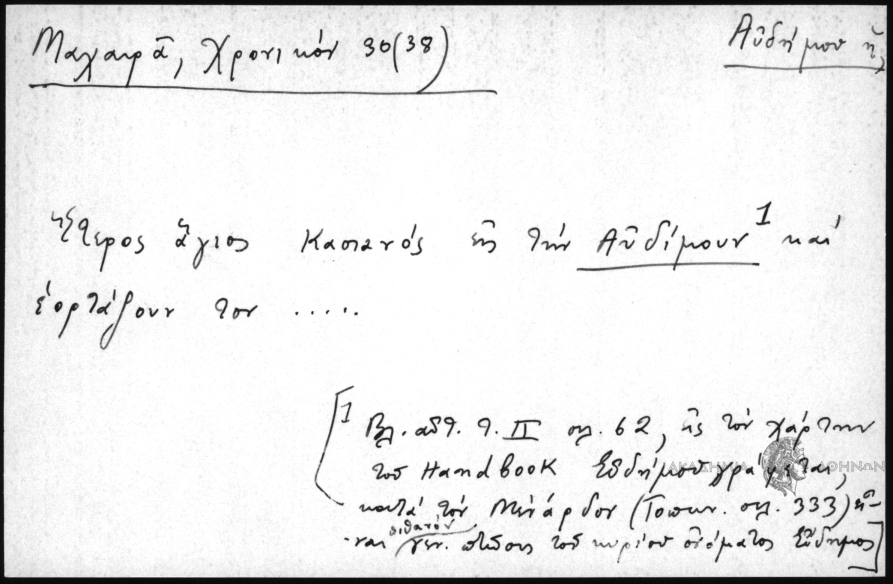 Μαχαιρᾶ, Χρονικόν 30(38)
Αὐδήμου ἡ,
Ἕτερος ἅγιος Κασιανός εἰς τήν Αὐδίμουν¹ καί
ἑορτάζουν τον .....
[1 Βλ. αὐτ. τ. II σελ. 62, εἰς τόν χάρτην
τοῦ Handbook Εὐδήμου γράφεται,
κατά τόν Μενάρδον (Τοπων. σελ. 333) εἶ-
ναι πιθανόν γεν. πτῶσις τοῦ κυρίου ὀνόματος Εὔδημος]
ΑΚΑΔΗΜΙΑ ΑΘΗΝΩΝ